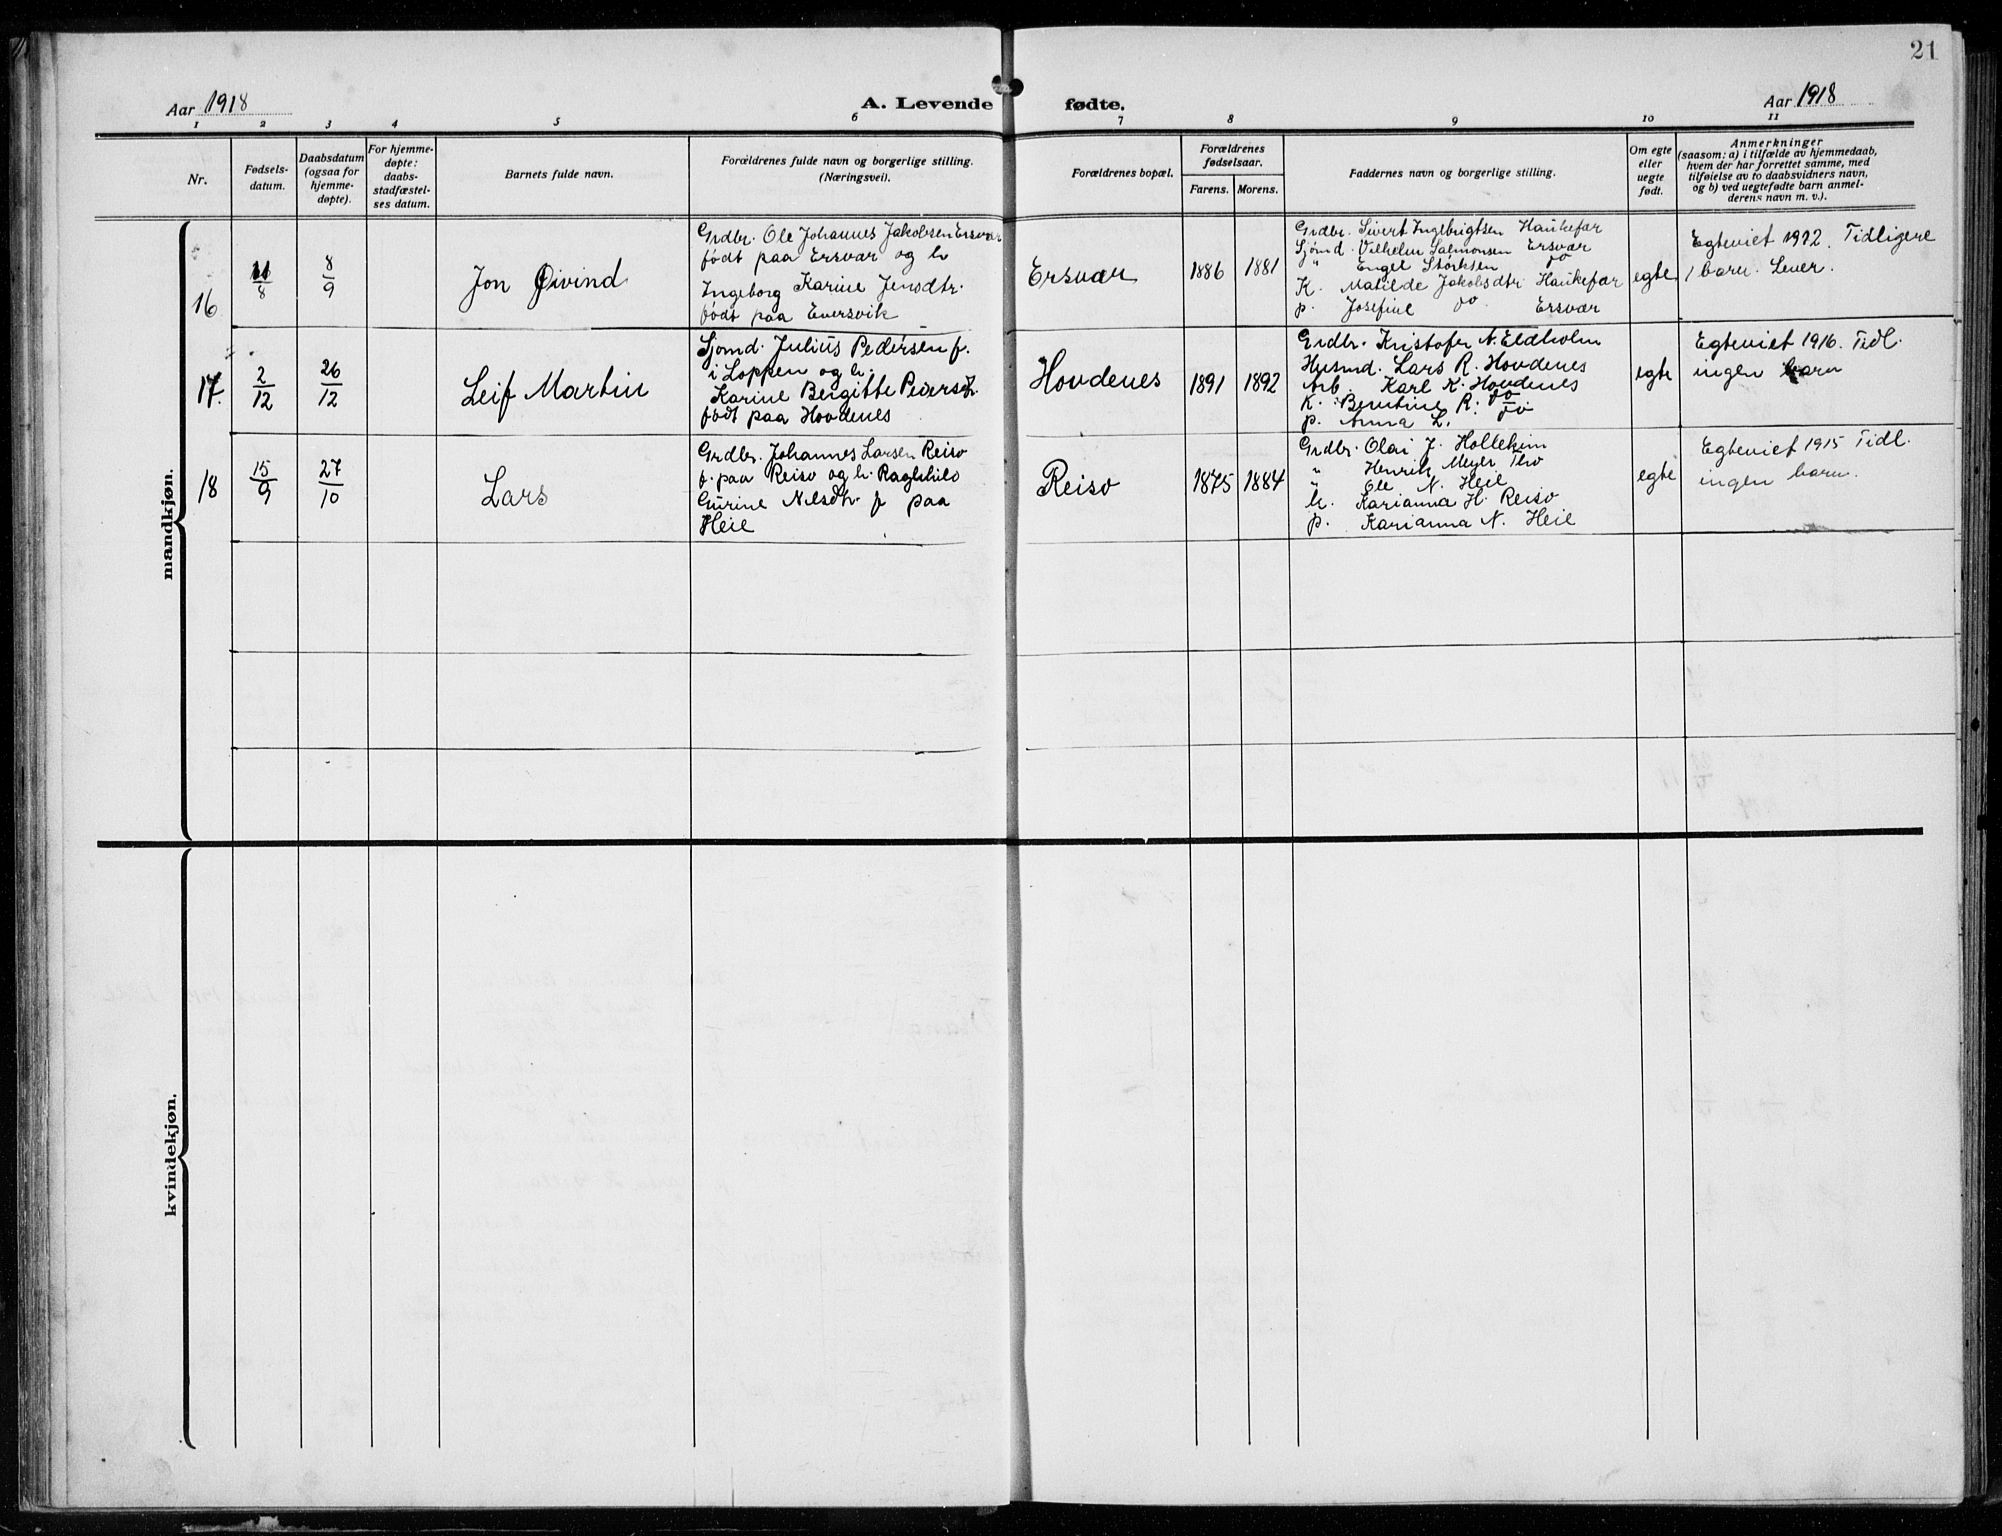 21
Aar 1918
A. Levende fødte.
Aar 1918
1 2 3 4 5 6 7 8 9 10 11
Nr.
Fødsels-
datum.
Daabsdatum
(ogsaa for
hjemme-
døpte).
For hjemme-
døpte:
daabs-
stadfæstel-
ses datum.
Barnets fulde navn.
Forældrenes fulde navn og borgerlige stilling.
(Næringsvei).
Forældrenes bopæl.
Forældrenes
fødselsaar.
Farens. Morens.
Faddernes navn og borgerlige stilling.
Om egte
eller
uegte
født.
Anmerkninger
(saasom: a) i tilfælde av hjemmedaab,
hvem der har forrettet samme, med
tilføielse av to daabsvidners navn,
og b) ved uegtefødte barn anmel-
derens navn m. v.).
mandkjøn.
16
11/8
8/9
Jon Øivind
Grdbr. Ole Johannes Jakobsen Ersvær
født paa Ersvær og h
Ingeborg Karine Jensdtr.
født paa Eversvik
Ersvær
1886 1881
Grdbr. Sivert Ingebrigtsen Haukefær
Sjømd. Vilhelm Salmonsen Ersvær
" Engel Størksen do
K. Matilde Jakobsdtr. Haukefær
p. Josefine do Ersvær
egte
Egteviet 1912. Tidligere
1 barn. Lever.
17.
2/12
26/12
Leif Martin
Sjømd. Julius Pedersen f.
i Loppen og h.
Karine Bergitte Pedersd.
født paa Hovdenes
Hovdenes
1891 1892
Grdbr. Kristofer N. Eldholm
Husmd. Lars R. Hovdenes
Arb. Karl K. Hovdenes
K. Berntine R. do
p. Anna L. do
egte
Egteviet 1916. Tidl.
ingen barn
18
15/9
27/10
Lars
Grdbr. Johannes Larsen Reisø
f. paa Reisø og h. Ragnhild
Gurine Nilsdtr f paa
Heie
Reisø
1875 1884
Grdbr. Olai J. Hollekim
" Henrik Meyer
" Ole N. Heie
h. Karianna H. Reisø
p. Karianna N. Heie
egte
Egteviet 1915 Tidl.
ingen barn.
kvindekjøn.